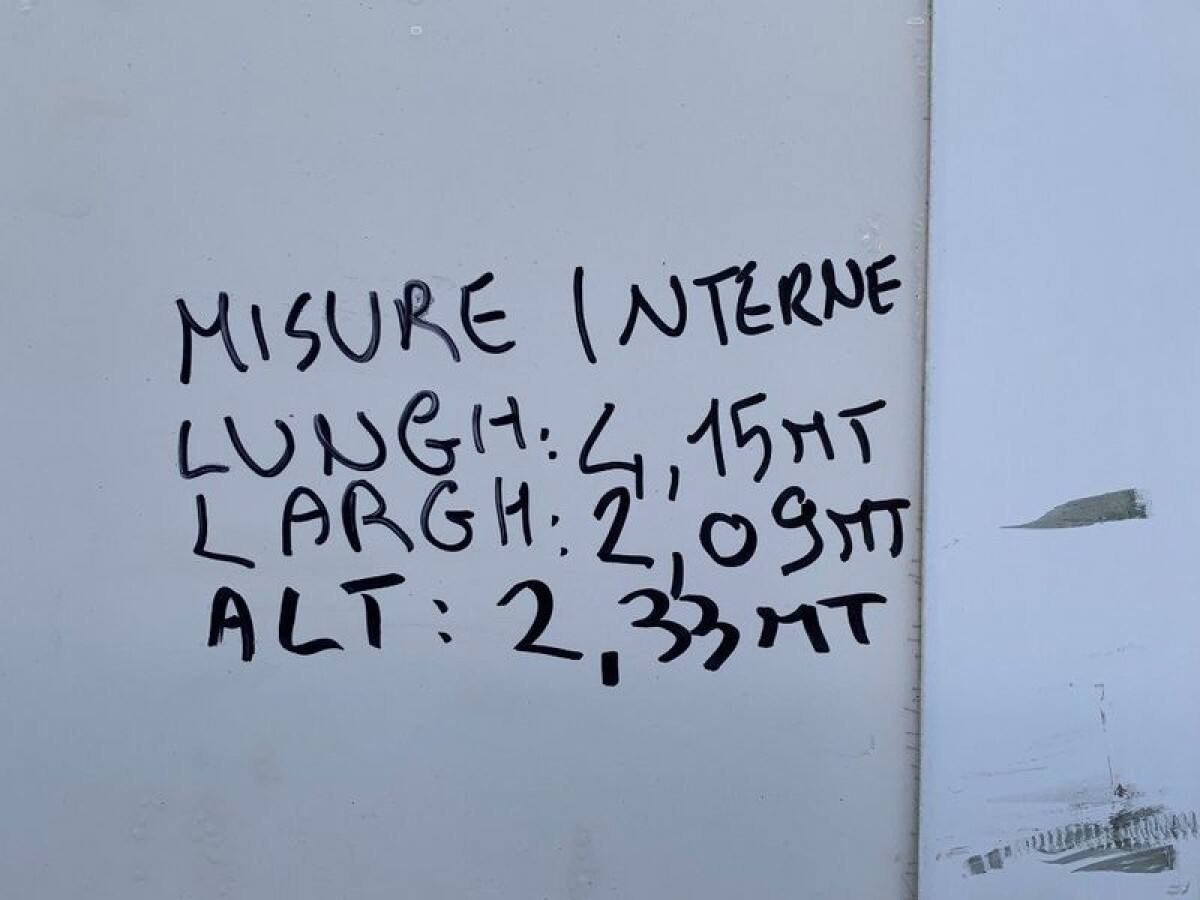 MISURE INTERNE
LUNGH: 4,15MT
LARGH: 2,09MT
ALT: 2,33MT